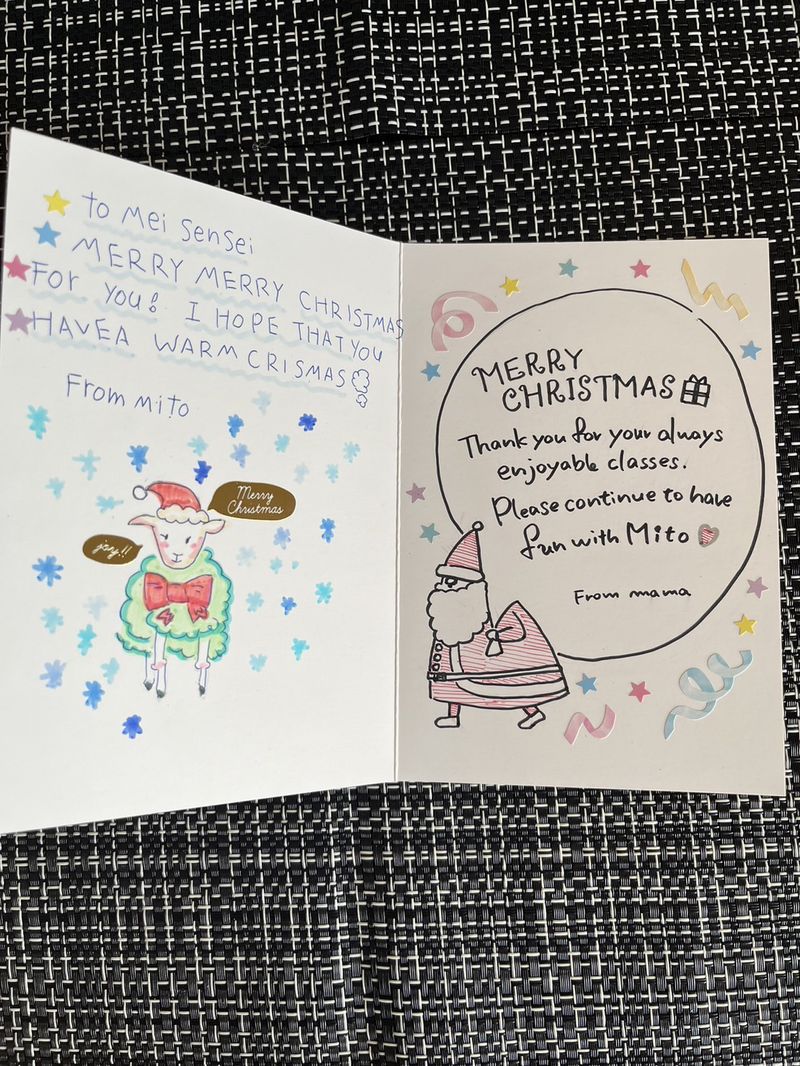 to Mei Sensei
MERRY MERRY CHRISTMAS
FOR YOU! I HOPE THAT YOU
HAVE A WARM CRISMAS
From mito
Merry
Christmas
joy!!
MERRY
CHRISTMAS
Thank you for your always
enjoyable classes.
Please continue to have
fun with Mito
From mama